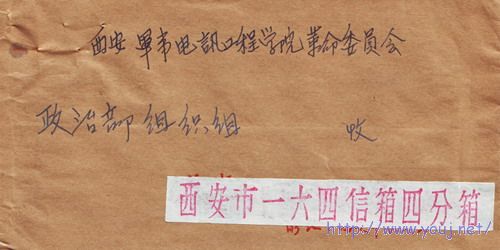 西安军电电訊工程学院革命委員会
政治部组织组 收
西安市一六四信箱四分箱
http://www.youj.net/